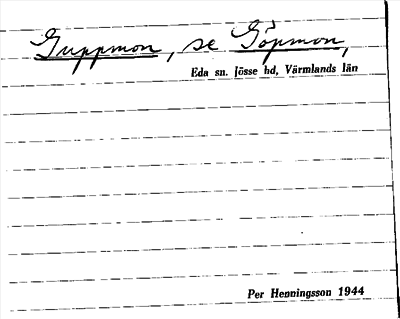 Guppmon, se Göpmon,
Eda sn. Jösse hd, Värmlands län
Per Henningsson 1944